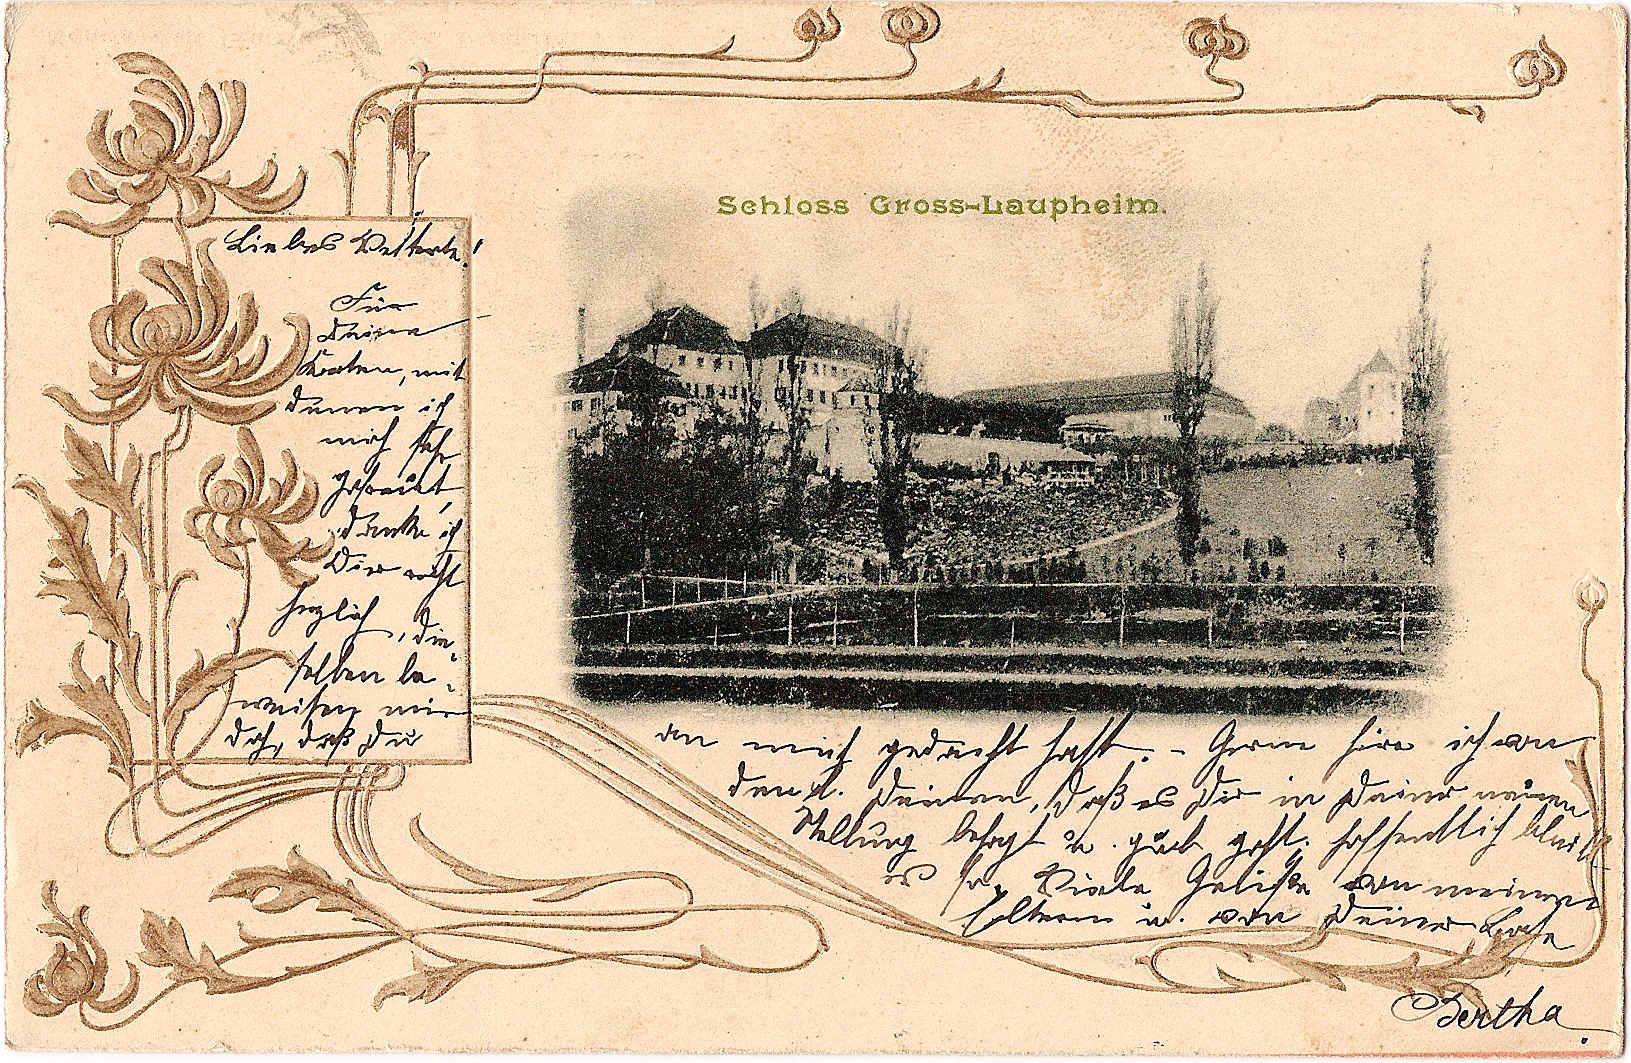 Schloss Gross-Laupheim.
Liebes
Für
Deine
Karten, mit
denen ich
mich sehr
gefreut,
danke ich
Dir recht
herzlich, die-
selben be-
weisen mir
doch, daß Du
an mich gedacht hast. - Gerne höre ich von
den l. Deinen, daß es Dir in Deiner neuen
Stellung behagt u. gut geht. hoffentlich bleibt
es so. Viele Grüße von meinen
Eltern u. von Deiner
Bertha